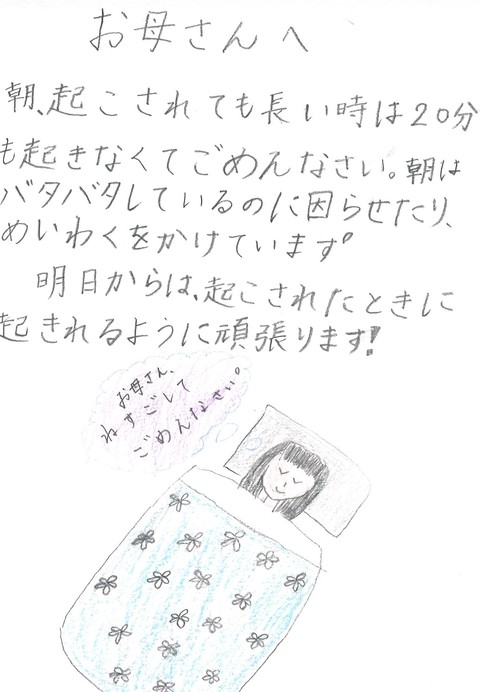 お母さんへ
朝、起こされても長い時は20分
も起きなくてごめんなさい。朝は
バタバタしているのに因らせたり、
めいわくをかけています。
明日からは、起こされたときに
起きれるように頑張ります!
お母さん、
ねすごして
ごめんなさい。